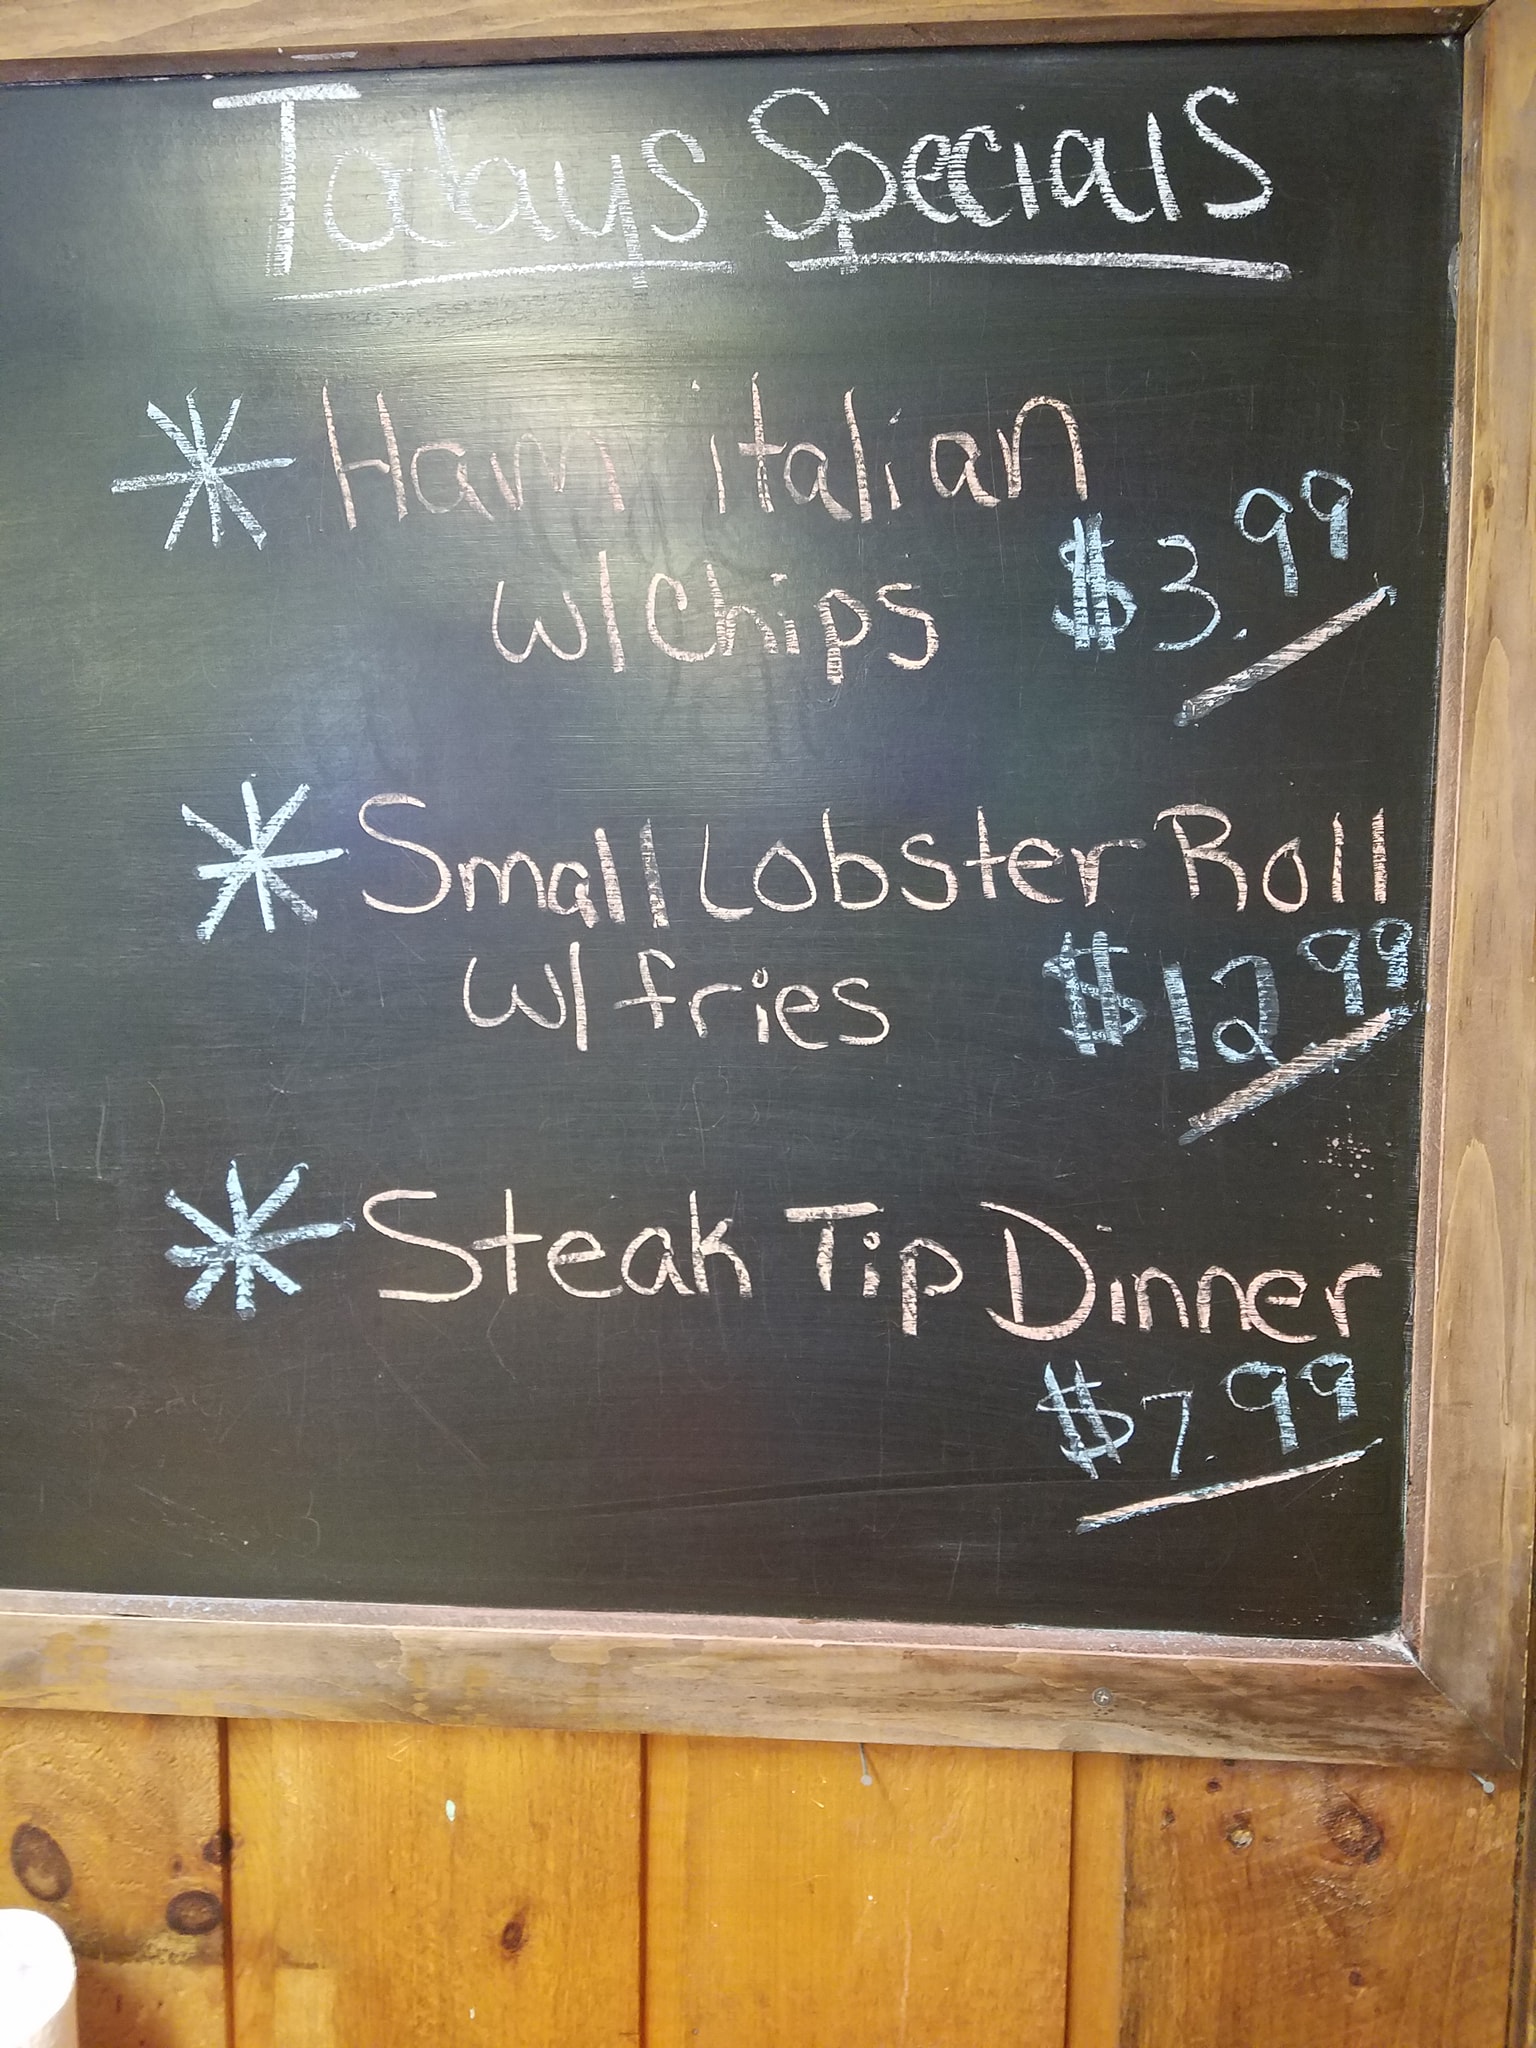 Todays Specials
* Ham italian
w/ Chips $3.99
* Small Lobster Roll
w/ fries $12.99
* Steak Tip Dinner
$7.99